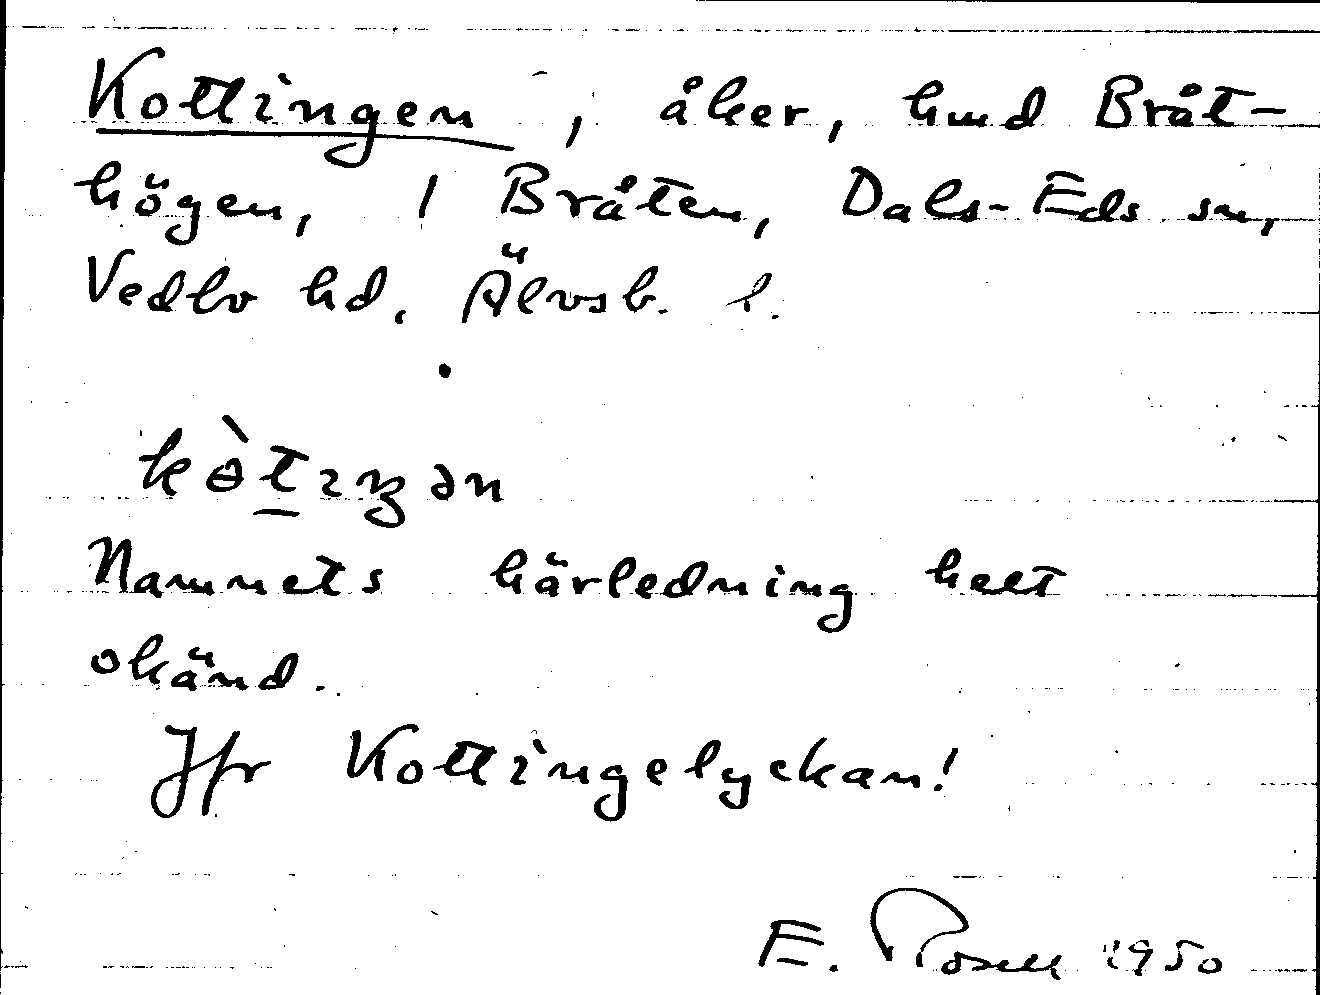 Kottingen, åker, hmd Bråt-
högen, 1 Bråten, Dals-Eds sn,
Vedbo hd. Älvsb. l.
kòtiŋən
Namnets härledning helt
okänd.
Jfr Kottingelyckan!
E. Rosell 1950